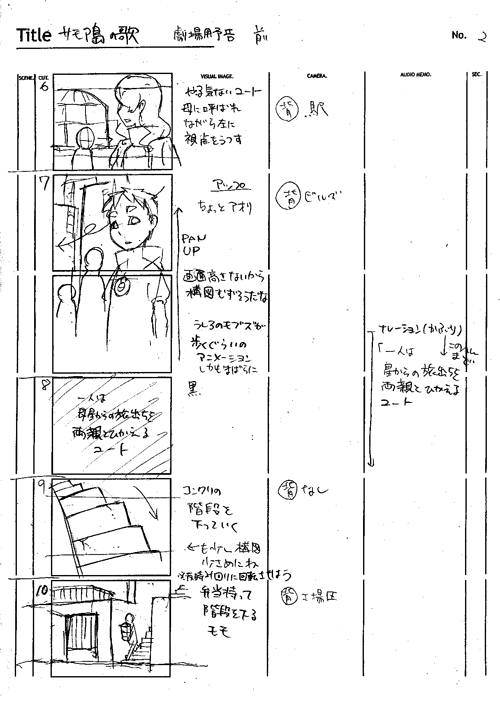 Title サモ陽の歌 劇場用予告 前
No. 2
SCENE. CUT. VISUAL IMAGE. CAMERA. AUDIO MEMO. SEC.
6
やる気ないユート
母に呼ばれ
ながら左に
視点をうつす
背 駅
7
アップ
ちょっとアオリ
PAN
UP
画面高さないから
構図むずそうだな
うしろのモブズが
歩くぐらいの
アニメーション
しかもまばらに
背 ビルで
ナレーション(かぶり)
「一人は
星からの旅出ちを
両親とひかえる
ユート
8
一人は
母星からの旅出ちを
両親とひかえる
ユート
黒
9
コンクリの
階段を
下っていく
←もう少し構図
小さめにね
背 なし
10
弁当持って
階段を下る
モモ
背 工場区